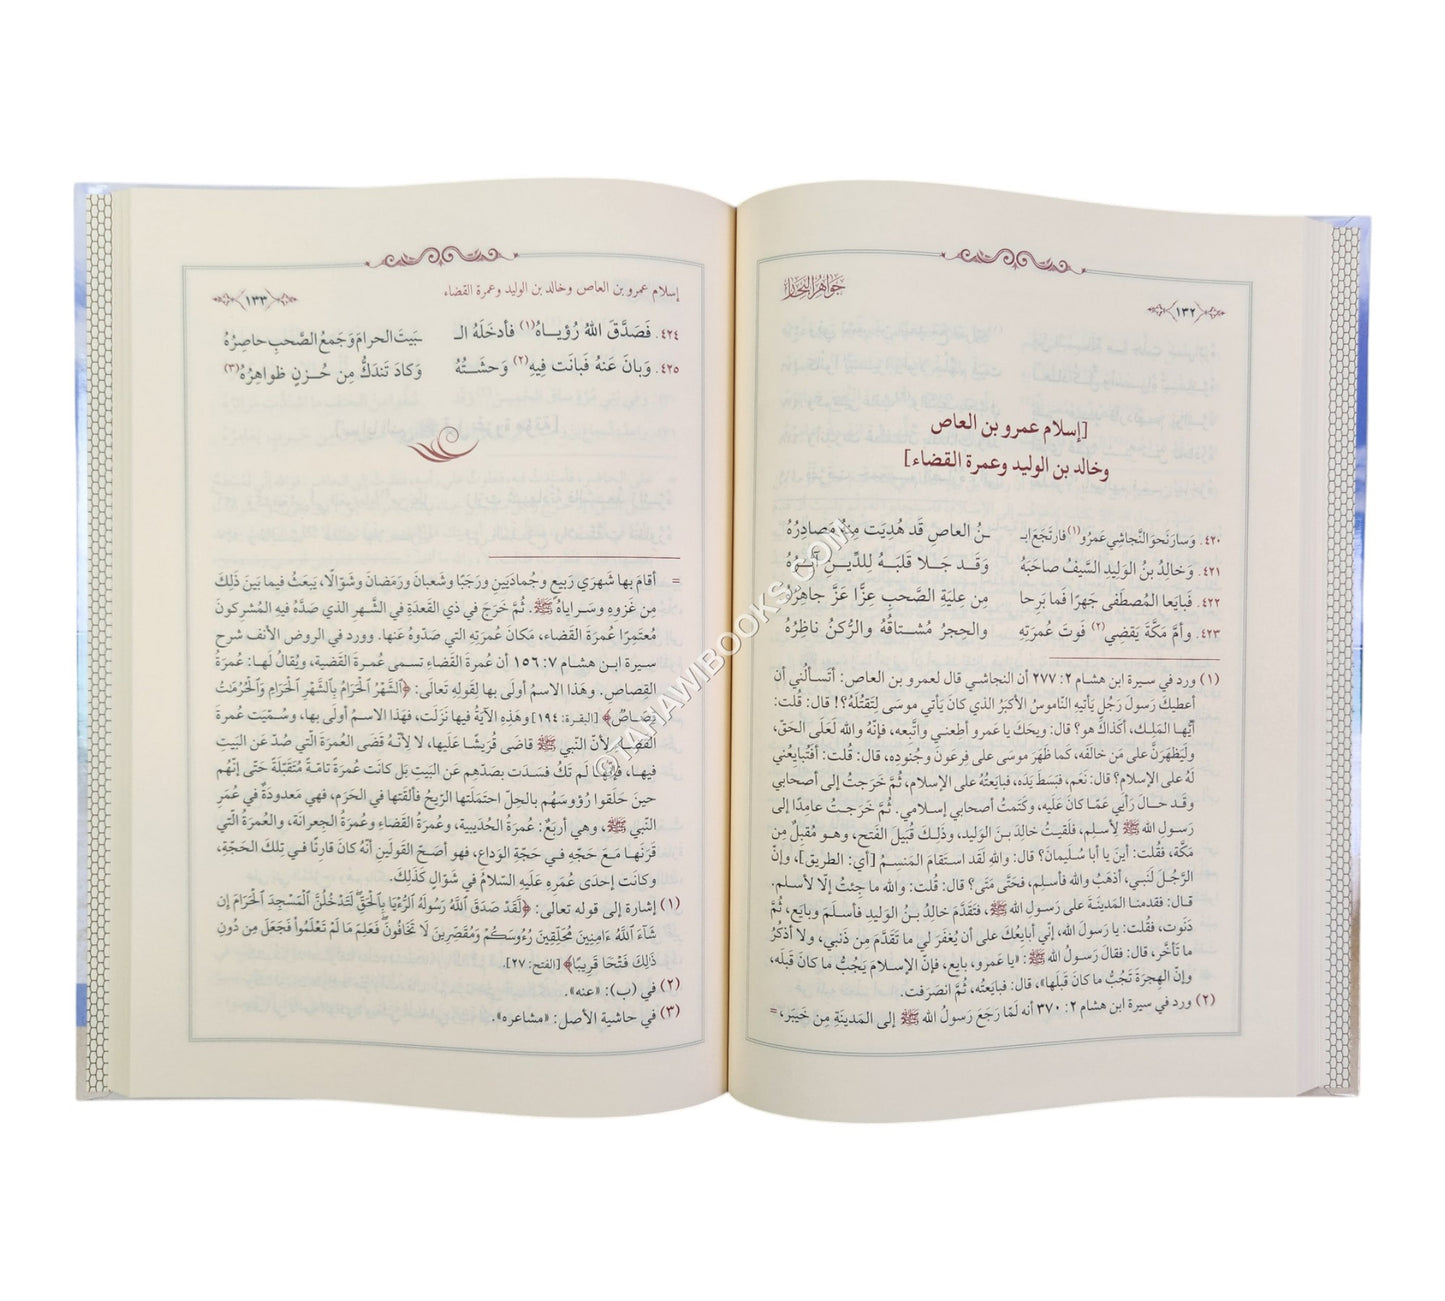 ﴿١٣٢﴾ جواهر البحار
[إسلام عمرو بن العاص
وخالد بن الوليد وعمرة القضاء]
٤٢٠. وَسارَ نَحوَ النَّجاشي عَمرُو(١) فارتَجَعَ ابـ ـنُ العاصِ قَد هُدِيَت مِنهُ مَصادِرُهُ
٤٢١. وَخالِدُ بنُ الوَليدِ السَّيفُ صاحَبَهُ وَقَـد جَـلا قَلبَـهُ لِلدِّيـنِ آثِـرُهُ
٤٢٢. فَبايَعا المُصطَفى جَهرًا فَما بَرِحا مِن عِليَةِ الصَّحبِ عِزًّا عَزَّ جاهِرُهُ
٤٢٣. وأمَّ مَكَّةَ يَقضِي(٢) فَوتَ عُمرَتِهِ والحِجرُ مُشـتاقُهُ والرُّكنُ ناظِرُهُ
(١) ورد في سيرة ابن هشام ٢: ٢٧٧ أن النجاشي قال لعمرو بن العاص: أتَسألُني أن
أعطيكَ رَسولَ رَجُلٍ يَأتيهِ النّاموسُ الأكبَرُ الذي كانَ يَأتي موسَى لِتَقتُلَهُ؟! قال: قُلت:
أيُّهـا المَلِـك، أكَذاكَ هو؟ قال: ويحَكَ يا عَمرو أطِعني واتَّبِعه، فإنَّهُ والله لَعَلَى الحَقّ،
ولَيَظهَرَنَّ على مَن خالَفَه، كَما ظَهَرَ موسَى على فِرعَونَ وجُنودِه، قال: قُلت: أفَتُبايِعُني
لَهُ على الإسلام؟ قال: نَعَم، فبَسَطَ يَدَه، فبايَعتُهُ على الإسلام، ثُمَّ خَرَجتُ إلى أصحابي
وقَـد حـالَ رَأيي عَمّا كانَ عَلَيه، وكَتَمتُ أصحابي إسلامي. ثُمَّ خَرَجتُ عامِدًا إلى
رَسولِ الله ﷺ لِأُسلِم، فلَقيتُ خالِدَ بنَ الوَليد، وذَلِكَ قُبَيلَ الفَتح، وهـو مُقبِلٌ مِن
مَكّة، فقُلت: أينَ يا أبا سُلَيمانَ؟ قال: واللهِ لَقَد استَقامَ المَنسِمُ [أي: الطريق]، وإنّ
الرَّجُلَ لَنَبي، أذهَبُ والله فأسلِم، فحَتَّى مَتَى؟ قال: قُلت: والله ما جِئتُ إلّا لأسلم.
قـال: فقَدمنا المَدينَةَ على رَسولِ الله ﷺ، فتَقَدَّمَ خالِدُ بـنُ الوَليدِ فأسلَمَ وبايَع، ثُمَّ
دَنَوت، فقُلت: يا رَسولَ الله، إنّي أبايعُكَ على أن يُغفَرَ لي ما تَقَدَّمَ مِن ذَنبي، ولا أذكُرُ
ما تَأخَّر، قال: فقالَ رَسولُ الله ﷺ: «يا عَمرو، بايِع، فإنّ الإسلامَ يَجُبُّ ما كانَ قَبلَه،
وإنّ الهِجرَةَ تَجُبُّ ما كانَ قَبلَها»، قال: فبايَعتُه، ثُمَّ انصَرَفت.
(٢) ورد في سيرة ابن هشام ٢: ٣٧٠ أنه لَمّا رَجَعَ رَسولُ الله ﷺ إلى المَدينَةِ مِن خَيبَر، =
إسلام عمرو بن العاص وخالد بن الوليد وعمرة القضاء ﴿١٣٣﴾
٤٢٤. فَصَدَّقَ اللهُ رُؤيـاهُ(١) فأدخَلَهُ الـ ـبَيتَ الحرامَ وَجَمعُ الصَّحبِ حاصِرُهُ
٤٢٥. وَبانَ عَنهُ فَبانَت فِيهِ(٢) وَحشَـتُهُ وَكادَ تَندَكُّ مِن حُـزنٍ ظواهِرُهُ(٣)
= أقامَ بها شَهرَي رَبيعٍ وجُمادَيَينِ ورَجَبًا وشَعبانَ ورَمَضانَ وشَوّالًا، يبعَثُ فيما بَينَ ذَلِكَ
مِن غَزوِه وسَـراياهُ ﷺ. ثُمَّ خَرَجَ في ذي القَعدَةِ في الشَّهرِ الذي صَدَّهُ فيهِ المُشرِكونَ
مُعتَمِرًا عُمرَةَ القَضاء، مَكانَ عُمرَتِهِ التي صَدّوهُ عَنها. وورد في الروض الأنف شرح
سيرة ابـن هشام ٧: ١٥٦ أن عُمرَةَ القَضاءِ تسمى عُمـرةَ القَضيّة، ويُقالُ لَهـا: عُمرَةُ
القِصاص. وهَذا الاسمُ أولَى بها لِقَولِهِ تَعالَى: ﴿ٱلشَّهْرُ ٱلْحَرَامُ بِٱلشَّهْرِ ٱلْحَرَامِ وَٱلْحُرُمَٰتُ
قِصَاصٌ﴾ [البقرة: ١٩٤] وهَذِهِ الآيَةُ فيها نَزَلَت، فهَذا الاسمُ أولَى بها، وسُـمّيَت عُمرَةَ
القَضاءِ لأنّ النّبي ﷺ قاضَى قُرَيشًا عَلَيها، لا لِأنّـهُ قَضَى العُمرَةَ الّتي صُدّ عَن البَيتِ
فيهـا، فإنَّها لَم تَكُ فسَدَت بصَدّهِم عَن البَيتِ بَل كانَت عُمرَةً تامّـةً مُتَقَبَّلَةً حَتَّى إنّهُم
حينَ حَلَقوا رُؤوسَهُم بالحِلّ احتَمَلَتها الرّيحُ فألقَتها في الحَرَم، فهي مَعدودَةٌ في عُمَرِ
النّبي ﷺ، وهي أربَعٌ: عُمرَةُ الحُدَيبية، وعُمرَةُ القَضاءِ وعُمرَةُ الجِعرانَة، والعُمرَةُ الّتي
قَرَنَهـا مَـعَ حَجّهِ فـي حَجّةِ الوَداع، فهو أصَحّ القَولَينِ أنّهُ كانَ قارِنًا فـي تِلكَ الحَجّةِ،
وكانَت إحدَى عُمَرِه عَلَيهِ السّلامُ في شَوّالٍ كَذَلِكَ.
(١) إشارة إلى قوله تعالى: ﴿لَّقَدْ صَدَقَ ٱللَّهُ رَسُولَهُ ٱلرُّءْيَا بِٱلْحَقِّ لَتَدْخُلُنَّ ٱلْمَسْجِدَ ٱلْحَرَامَ إِن
شَآءَ ٱللَّهُ ءَامِنِينَ مُحَلِّقِينَ رُءُوسَكُمْ وَمُقَصِّرِينَ لَا تَخَافُونَ فَعَلِمَ مَا لَمْ تَعْلَمُوا۟ فَجَعَلَ مِن دُونِ
ذَٰلِكَ فَتْحًا قَرِيبًا﴾ [الفتح: ٢٧].
(٢) في (ب): «عنه».
(٣) في حاشية الأصل: «مشاعره».
©TAHAWIBOOKS.COM